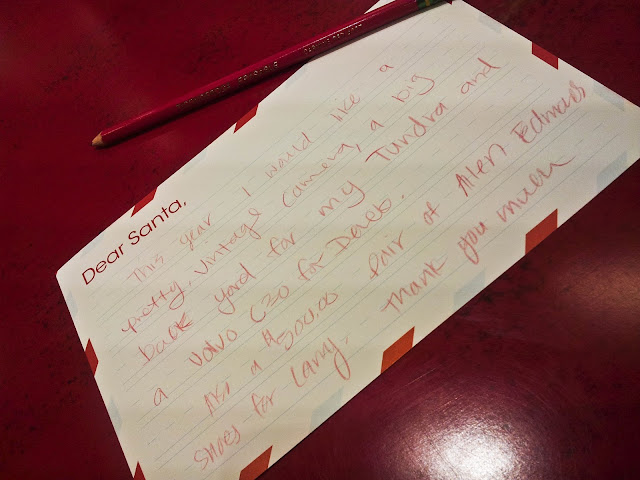 Dear Santa,
This year I would like a
pretty, vintage camera, a big
back yard for my Tundra and
a Volvo C30 for Derek.
Also a $500.00 pair of Allen Edmonds
shoes for Larry. Thank you much